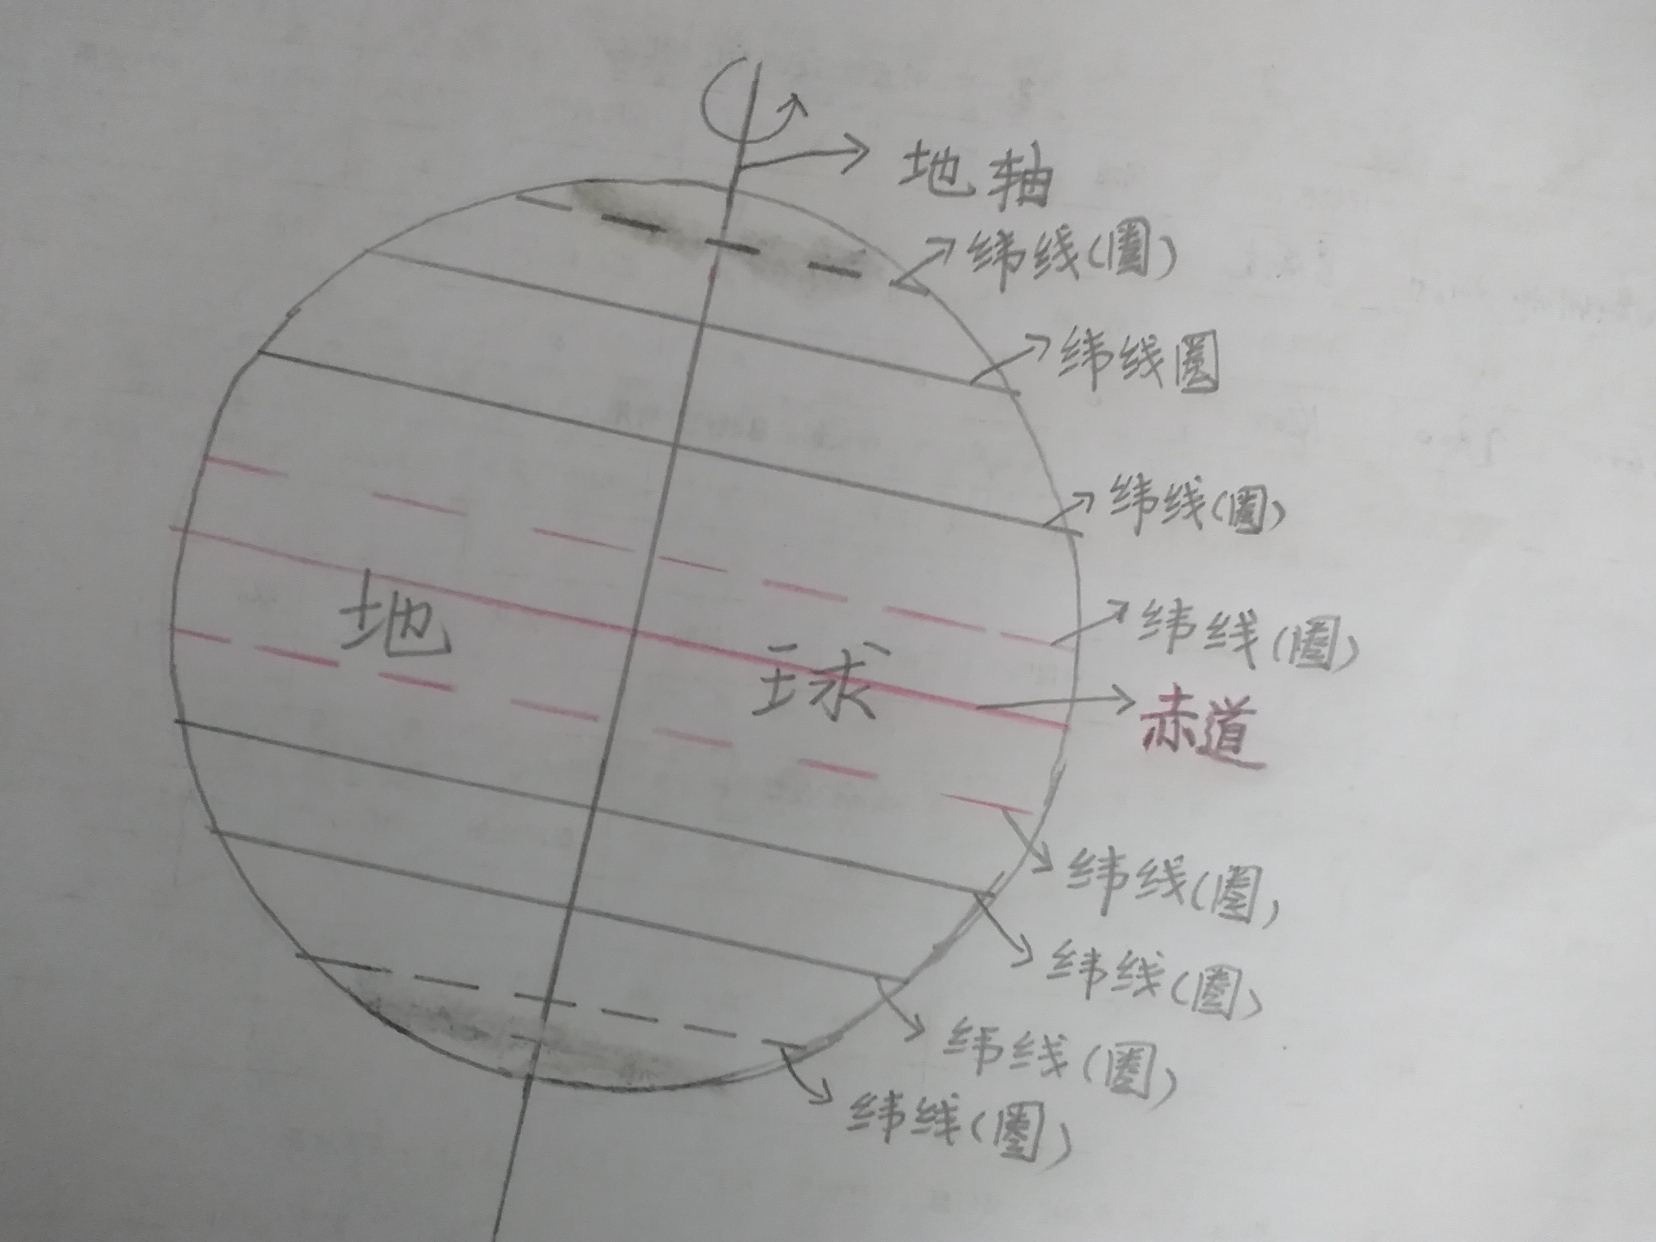 地轴
纬线(圈)
纬线圈
纬线(圈)
纬线(圈)
地球
赤道
纬线(圈)
纬线(圈)
纬线(圈)
纬线(圈)